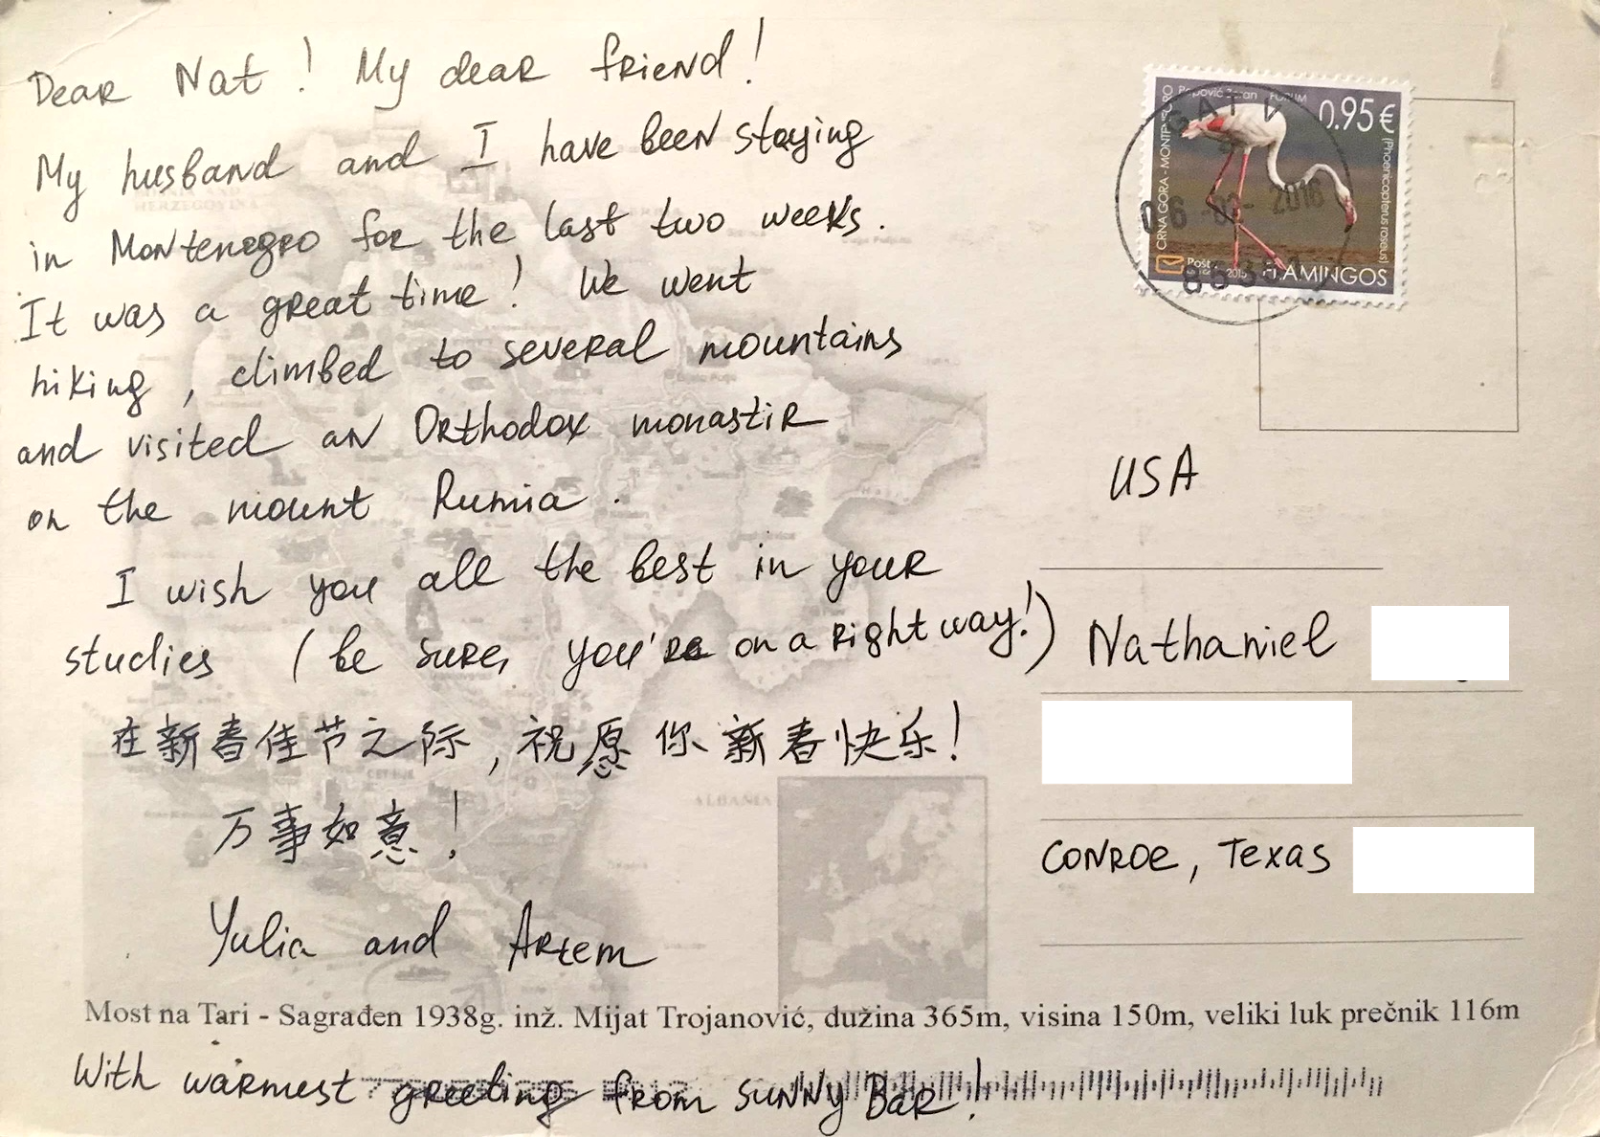 Dear Nat! My dear friend!
My husband and I have been staying
in Montenegro for the last two weeks.
It was a great time! We went
hiking, climbed to several mountains
and visited an Orthodox monastir
on the mount Rumia.
I wish you all the best in your
studies (be sure, you're on a right way!)
在新春佳节之际,祝愿你新春快乐!
万事如意!
Yulia and Artem
Most na Tari - Sagrađen 1938g. inž. Mijat Trojanović, dužina 365m, visina 150m, veliki luk prečnik 116m
With warmest greeting from sunny Bar!
Popović Zoran FORUM
0.95€
CRNA GORA - MONTENEGRO
(Phoenicopterus roseus)
2015
FLAMINGOS
2016
USA
Nathaniel
Conroe, Texas
HERZEGOVINA
ALBANIA